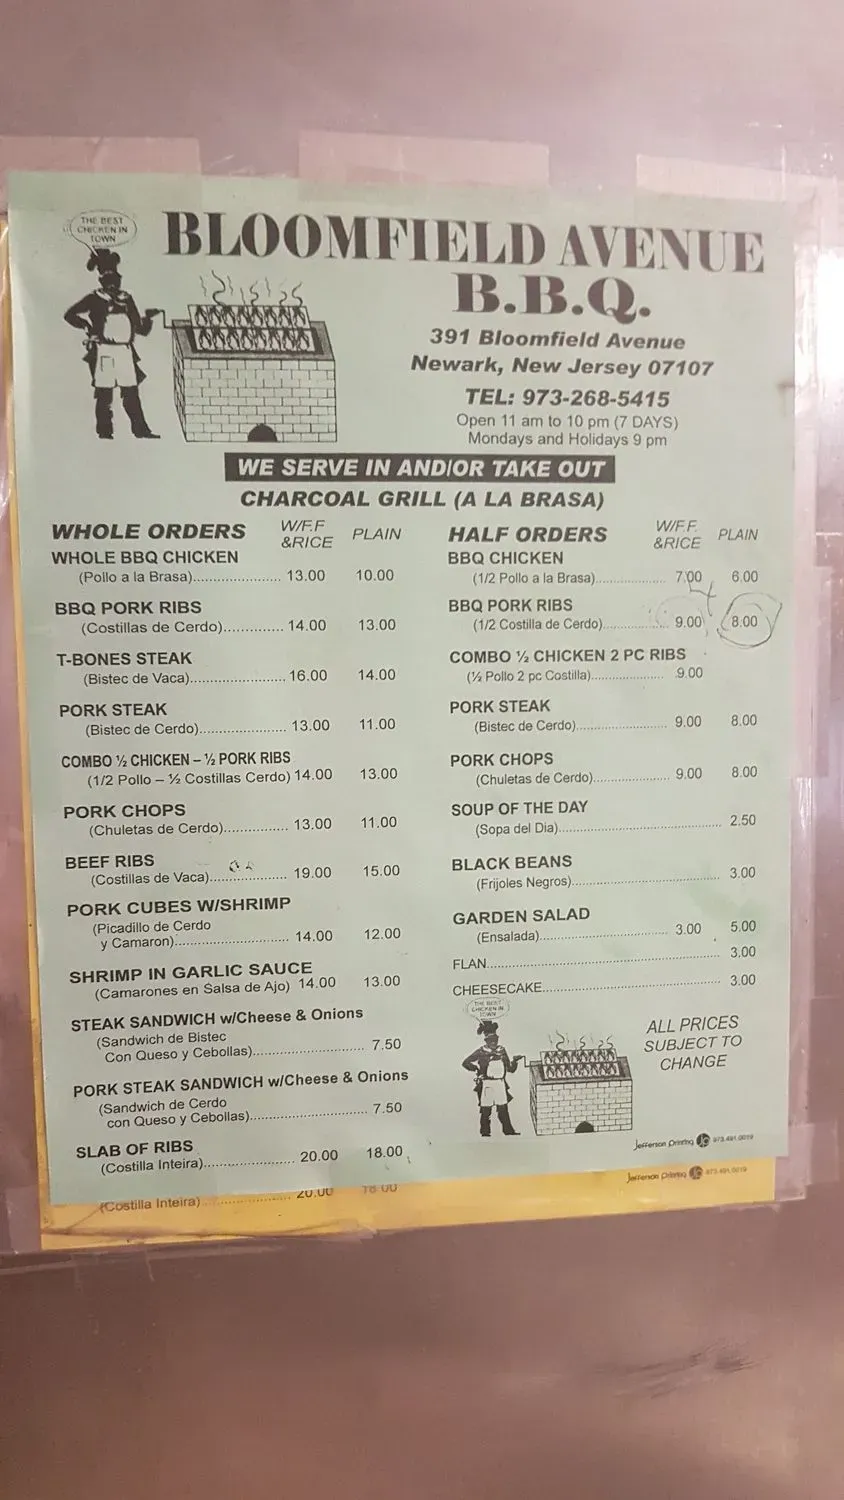 THE BEST
CHICKEN IN
TOWN
BLOOMFIELD AVENUE
B.B.Q.
391 Bloomfield Avenue
Newark, New Jersey 07107
TEL: 973-268-5415
Open 11 am to 10 pm (7 DAYS)
Mondays and Holidays 9 pm
WE SERVE IN AND/OR TAKE OUT
CHARCOAL GRILL (A LA BRASA)
WHOLE ORDERS W/F.F &RICE PLAIN
WHOLE BBQ CHICKEN
(Pollo a la Brasa)..................... 13.00 10.00
BBQ PORK RIBS
(Costillas de Cerdo).............. 14.00 13.00
T-BONES STEAK
(Bistec de Vaca)....................... 16.00 14.00
PORK STEAK
(Bistec de Cerdo)...................... 13.00 11.00
COMBO ½ CHICKEN – ½ PORK RIBS
(1/2 Pollo – ½ Costillas Cerdo) 14.00 13.00
PORK CHOPS
(Chuletas de Cerdo)............... 13.00 11.00
BEEF RIBS
(Costillas de Vaca)................... 19.00 15.00
PORK CUBES W/SHRIMP
(Picadillo de Cerdo
y Camaron)............................ 14.00 12.00
SHRIMP IN GARLIC SAUCE
(Camarones en Salsa de Ajo) 14.00 13.00
STEAK SANDWICH w/Cheese & Onions
(Sandwich de Bistec
Con Queso y Cebollas)........................... 7.50
PORK STEAK SANDWICH w/Cheese & Onions
(Sandwich de Cerdo
con Queso y Cebollas)............................. 7.50
SLAB OF RIBS
(Costilla Inteira)...................... 20.00 18.00
HALF ORDERS W/F.F. &RICE PLAIN
BBQ CHICKEN
(1/2 Pollo a la Brasa)................. 7.00 6.00
BBQ PORK RIBS
(1/2 Costilla de Cerdo)................ 9.00 8.00
COMBO ½ CHICKEN 2 PC RIBS
(½ Pollo 2 pc Costilla).................... 9.00
PORK STEAK
(Bistec de Cerdo)...................... 9.00 8.00
PORK CHOPS
(Chuletas de Cerdo)................... 9.00 8.00
SOUP OF THE DAY
(Sopa del Dia)........................................ 2.50
BLACK BEANS
(Frijoles Negros)..................................... 3.00
GARDEN SALAD
(Ensalada)................................ 3.00 5.00
FLAN......................................................... 3.00
CHEESECAKE........................................... 3.00
THE BEST
CHICKEN IN
TOWN
ALL PRICES
SUBJECT TO
CHANGE
Jefferson Printing 973.491.0019
Jefferson Printing 973.491.0019
(Costilla Inteira)...................... 20.00 18.00